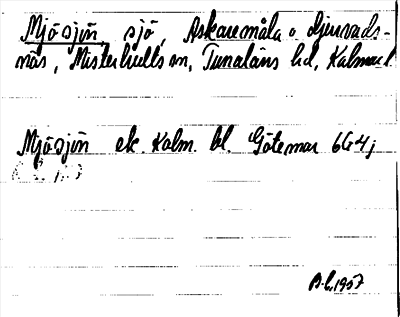 Mjösjön, sjö, Askaremåla o. Djurvads-
näs, Misterhults sn, Tunaläns hd, Kalmar l
Mjösjön ek. Kalm. bl. Götemar 6G4j
1957